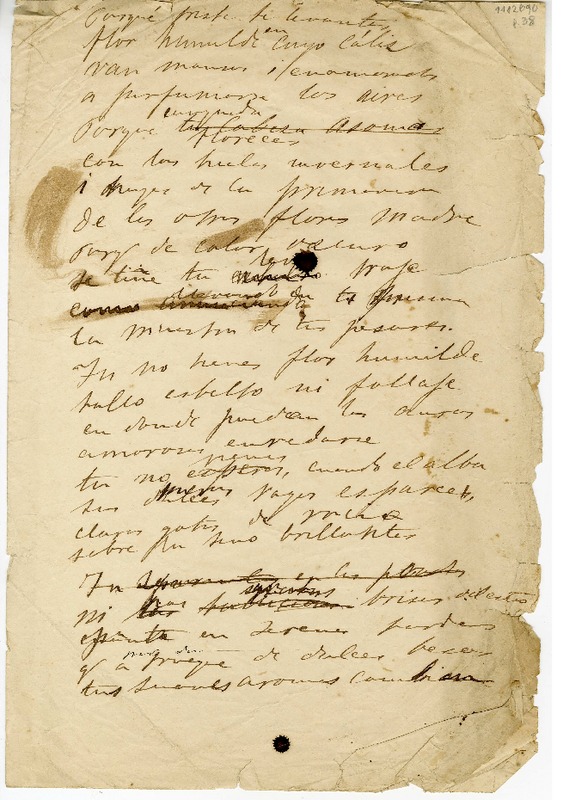 1112690
p. 38
Porqué triste te levantas
flor humilde en cuyo cáliz
van mansos i enamorados
a perfumarse los aires
Porque tu cabeza asomas
floreces
con los hielos invernales
i huyes de la primavera
de las otras flores madre
porq̃ de color oscuro
se tiñe tu traje
como en tu
la muestra de tus pesares.
Tu no tienes flor humilde
tallo esbelto ni follaje
en donde puedan las auras
amorosas enredarse
tienes
tu no esperes, cuando el alba
sus dulces rayos esparce,
claras gotas de rocio
sobre tu seno brillantes
Tu en los prados
ni las brisas
en serenas tardes
q̃ a trueque de dulces besos
tus suaves aromas cambian